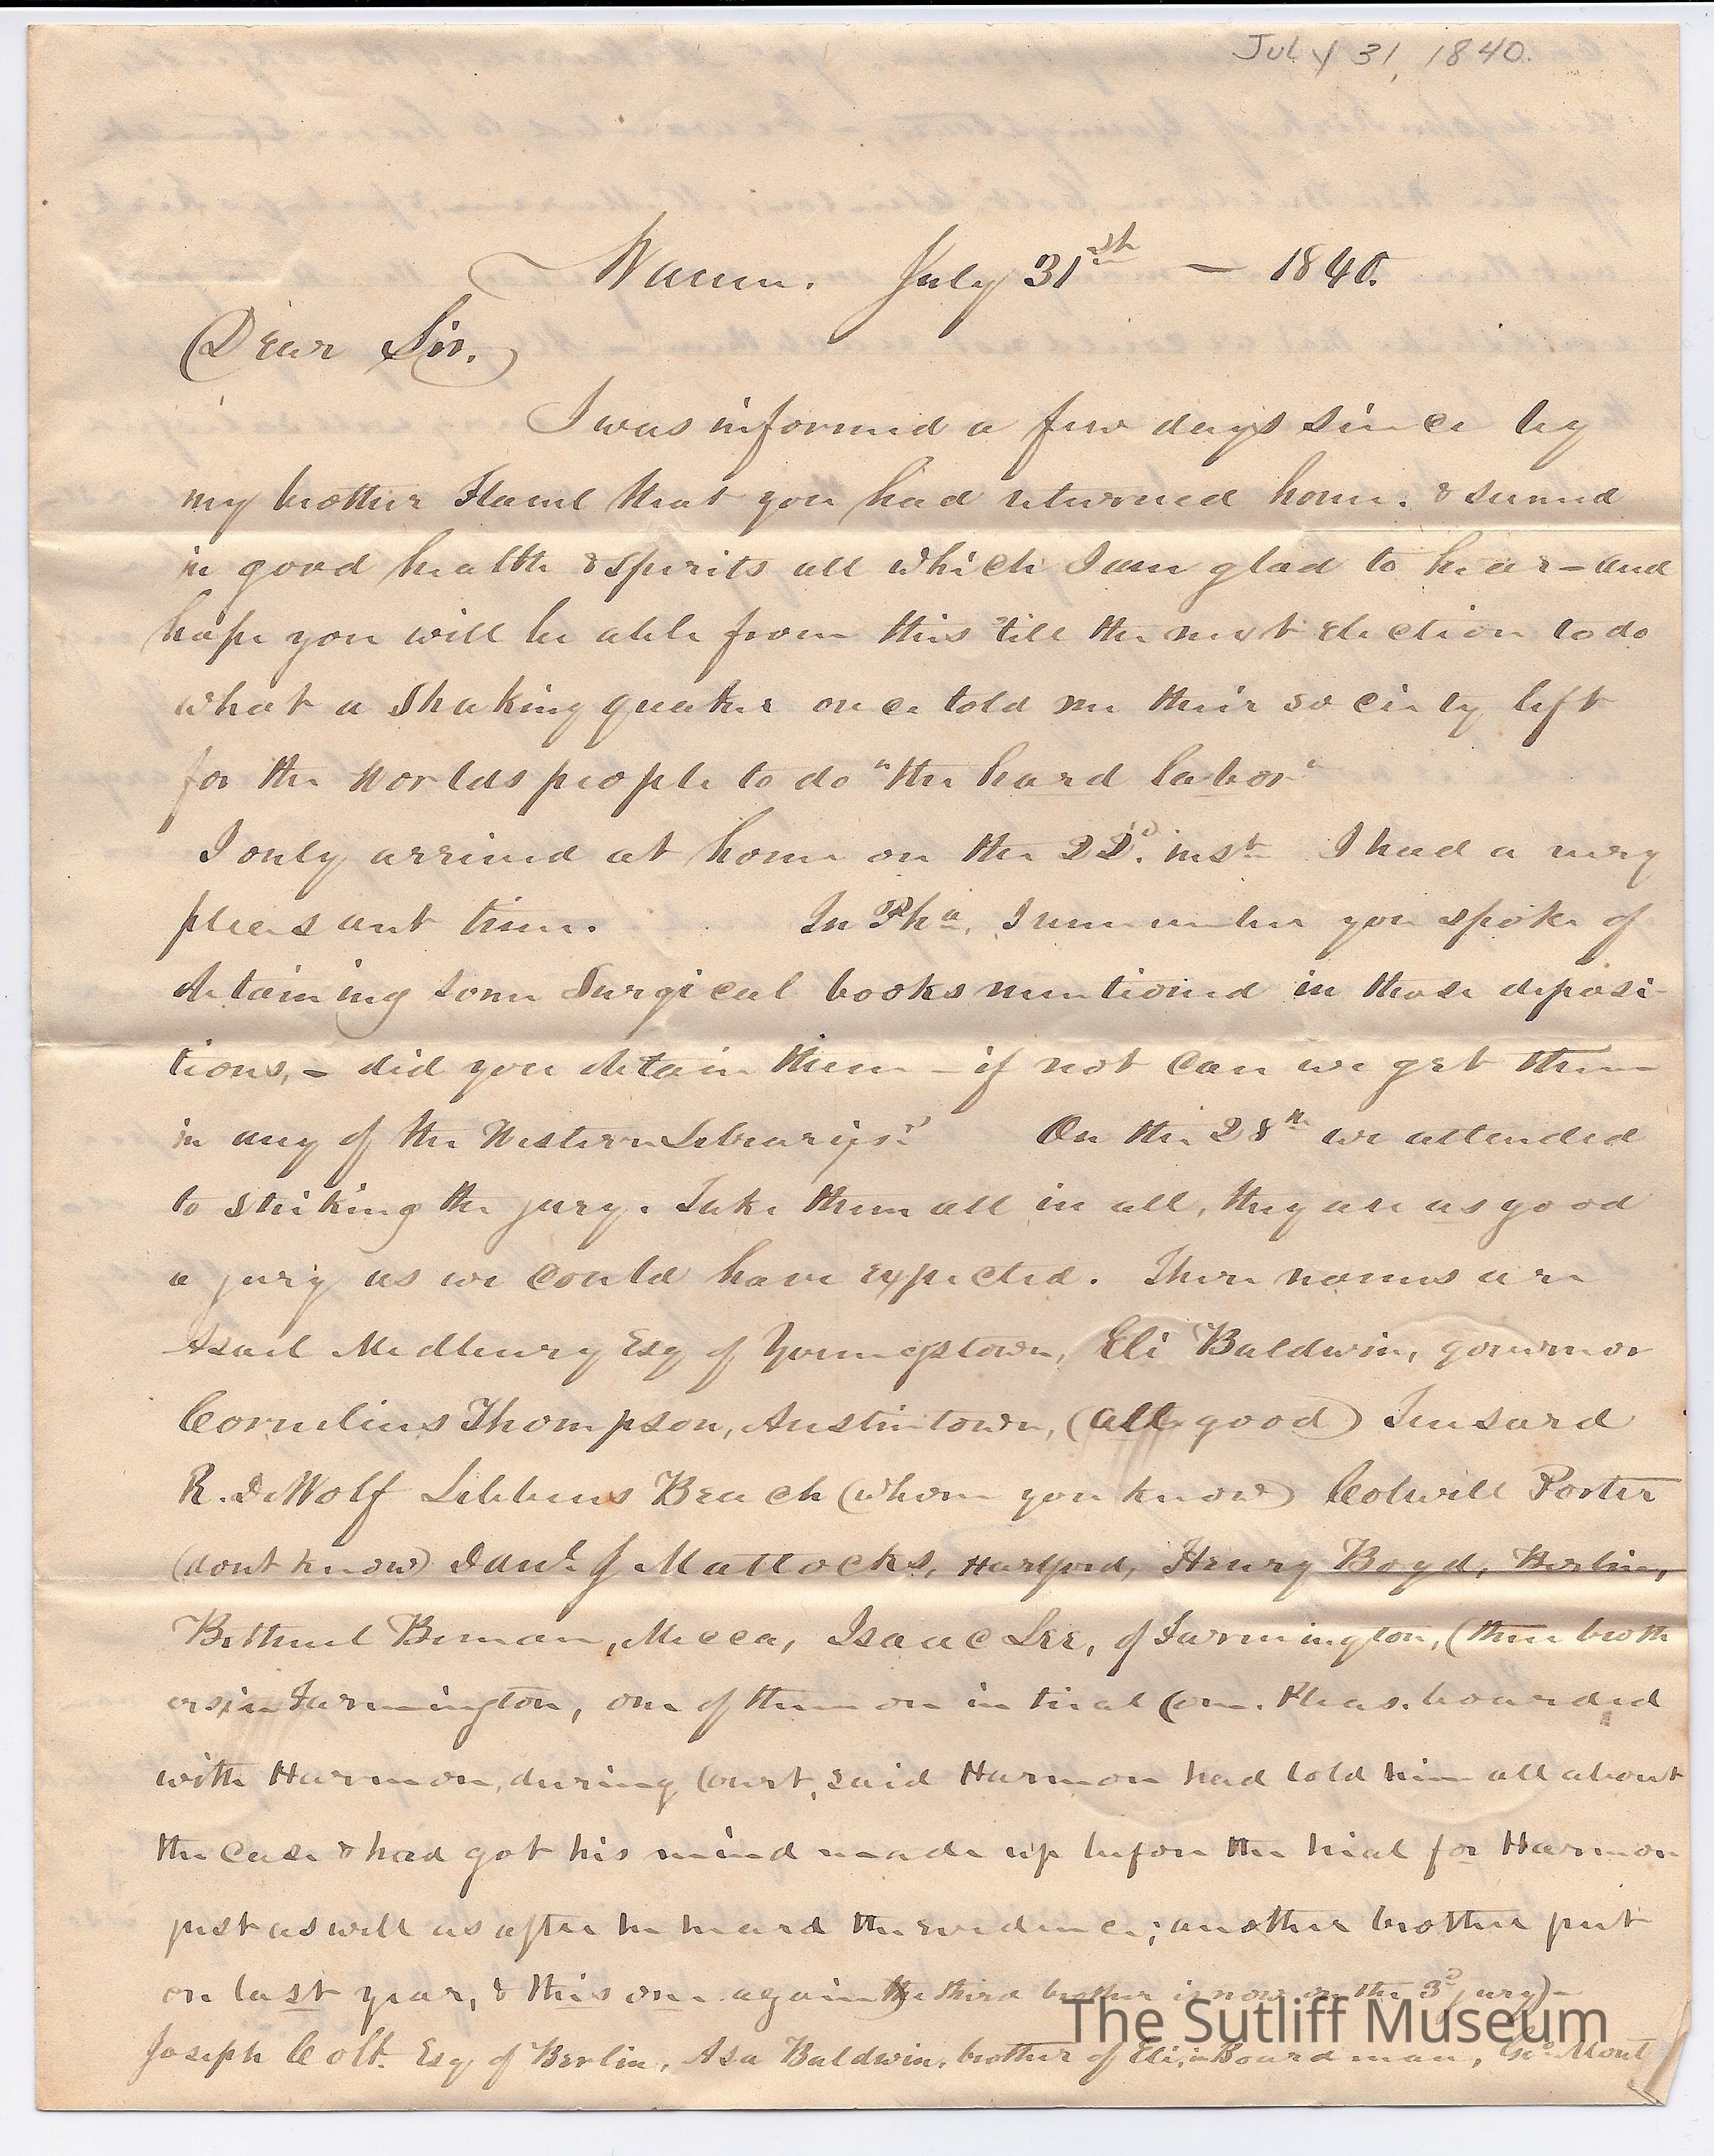 July 31, 1840.
Warren. July 31st — 1840.
Dear Sir.
I was informed a few days since by
my brother that you had returned home. & seemed
in good health & spirits all which I am glad to hear – and
hope you will be able from this 'till the next election to do
what a Shaking quaker once told me their society left
for the worlds people to do "the hard labor"
I only arrived at home on the 22d. inst I had a very
pleasant time. In Pha. I remember you spoke of
obtaining some Surgical books mentioned in those deposi-
tions, – did you obtain them – if not can we get them
in any of the Western Libraries? On the 28th we attended
to striking the jury. Take them all in all, they are as good
a jury as we could have expected. There names are
Asael Medbury Esq of Youngstown, Eli Baldwin, governor
Cornelius Thompson, Austintown, (all good) Tensard
R. DeWolf Lebbeus Beach (whom you know) Colwell Porter
(dont know) Danl. J Mattocks, Hartford, Henry Boyd, Berlin,
Bethuel Beman, Mecca, Isaac Lee, of Farmington, (three broth
ers in Farmington, one of them on in trial Com. Pleas. boarded
with Harmon, during Court, said Harmon had told him all about
the case & had got his mind made up before the trial for Harmon
just as well as after he heard the evidence; another brother put
on last year, & this one again the third brother is now on the 3d jury) –
Joseph Colt. Esq of Berlin, Asa Baldwin, brother of Eli, in Boardman, Geo Mont
The Sutliff Museum